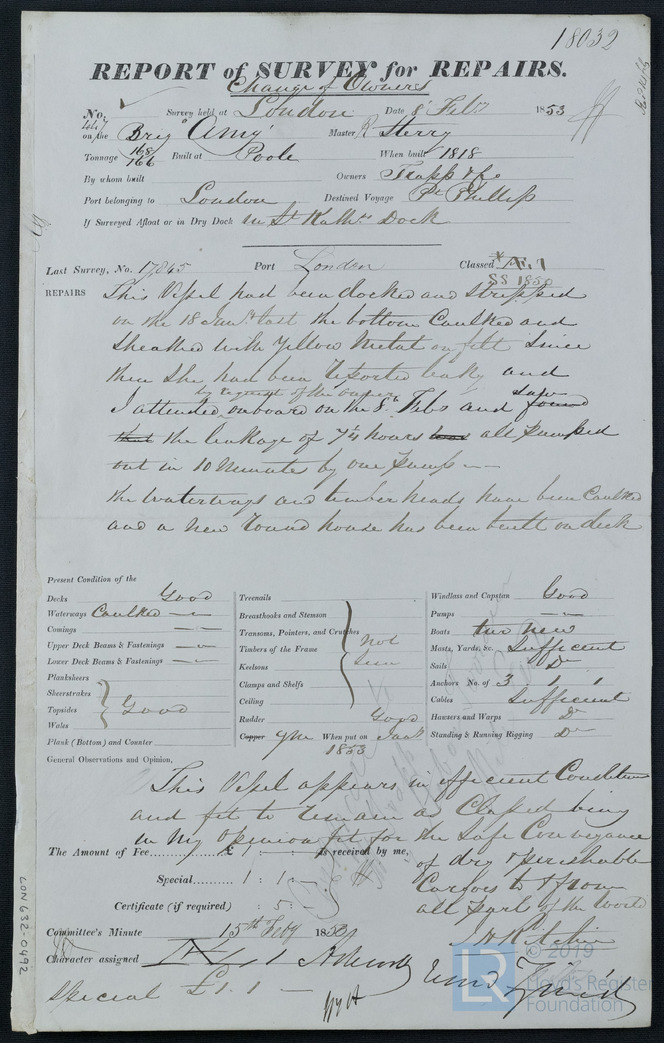 18032
REPORT of SURVEY for REPAIRS.
Change of Owners
No. Survey held at London Date 8 Feby 1853
on the Brig "Amy" Master R Sterry
Tonnage 168/166 Built at Poole When built 1818
By whom built Owners Trapp & Co
Port belonging to London Destined Voyage Pt Phillip
If Surveyed Afloat or in Dry Dock in St Kaths Dock
Last Survey, No. 17845 Port London Classed
SS 1850
REPAIRS This Vessel had been docked and stripped
on the 18 Jany last the bottom Caulked and
Sheathed with Yellow Metal on felt since
then she had been reported leaky and
by request of the owner saw
I attended onboard on the 8th Feby and found
that the leakage of 7¼ hours was all pumped
out in 10 Minutes by one pump —
the Waterways and timberheads have been Caulked
and a new round house has been built on deck
Present Condition of the
Decks Good
Waterways Caulked
Comings
Upper Deck Beams & Fastenings
Lower Deck Beams & Fastenings
Planksheers
Sheerstrakes
Topsides Good
Wales
Plank (Bottom) and Counter
Treenails
Breasthooks and Stemson
Transoms, Pointers, and Crutches not
Timbers of the Frame seen
Keelsons
Clamps and Shelfs
Ceiling
Rudder Good
Copper YM When put on Jany
1853
Windlass and Capstan Good
Pumps
Boats two new
Masts, Yards, &c. Sufficient
Sails Do
Anchors No. of 3 1 1
Cables Sufficient
Hawsers and Warps Do
Standing & Running Rigging Do
General Observations and Opinion,
This Vessel appears in efficient Condition
and fit to remain as Classed being
in my opinion fit for the Safe Conveyance
of dry & perishable
Cargoes to & from
all parts of the World
The Amount of Fee £ 1 : - : - is received by me,
Special 1 : 1 : -
Certificate (if required) : 5 :
Committee's Minute 15th Feby 1853
Character assigned
Special £1.1 —
LON 632-0492
© 2019
LR
Lloyd's Register
Foundation